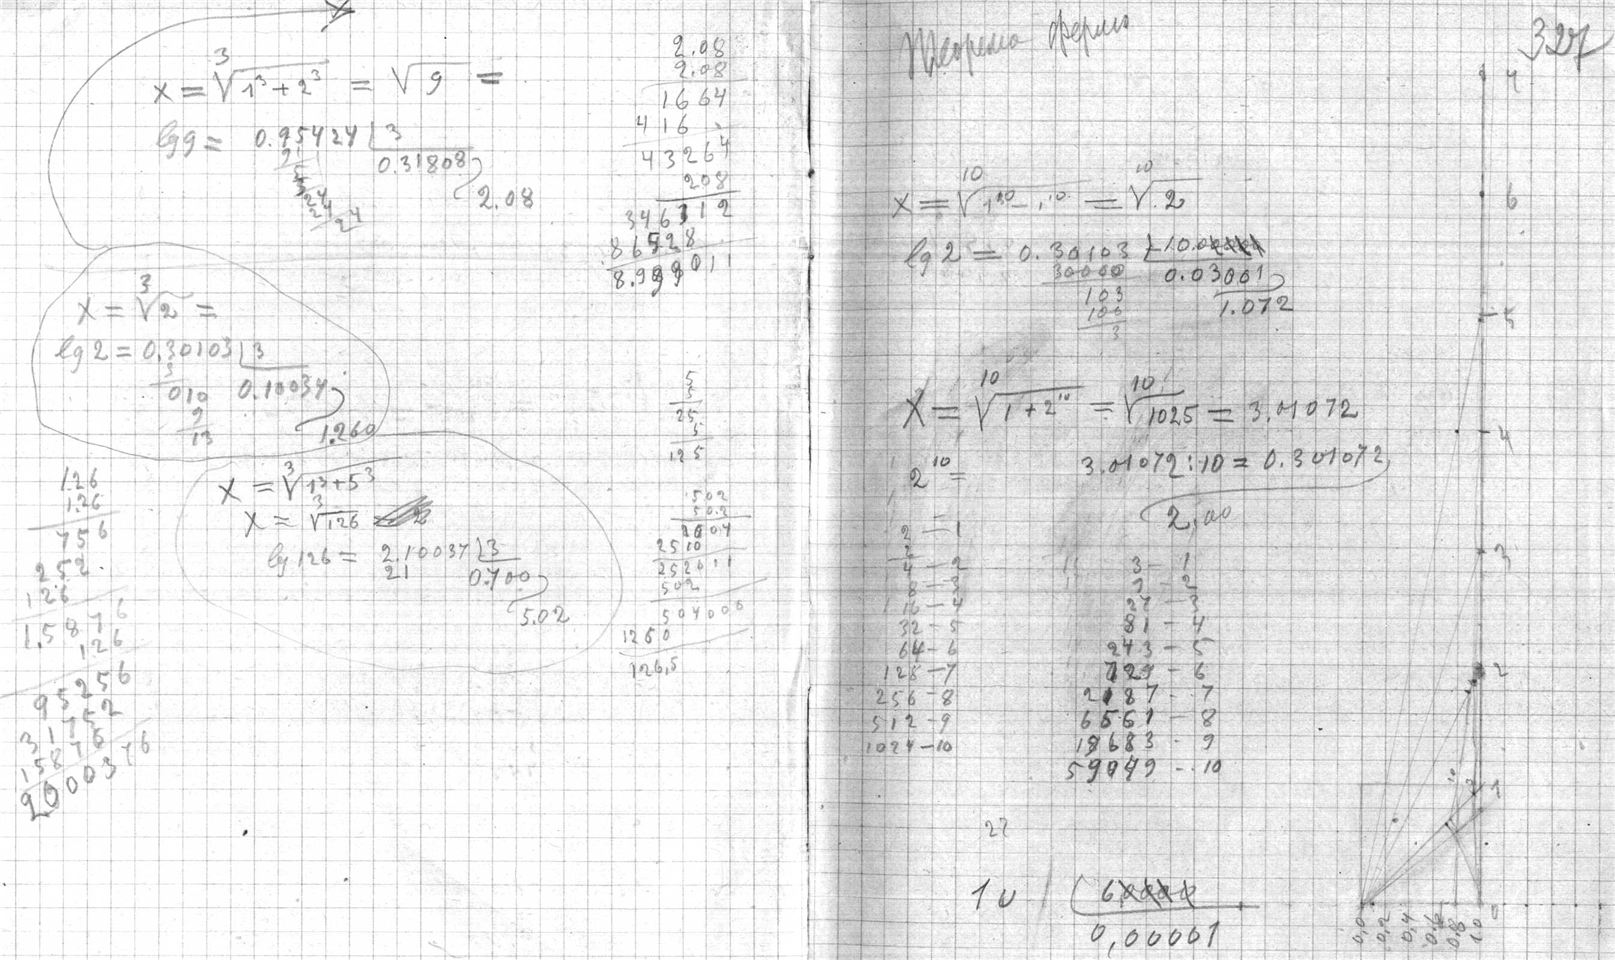 x = ∛1³ + 2³ = √9 =
lg 9 = 0.95424 | 3
0.31808
2.08
2.08
2.08
1664
416
43264
208
346112
86528
8.999011
x = ∛2 =
lg 2 = 0.30103 | 3
3
010
0.10034
9
13
1.260
1.26
1.26
756
252
126
1.5876
126
95256
31752
15876
2000376
x = ∛1³+5³
x = ∛126
lg 126 = 2.10037 | 3
21
0.700
5.02
5
5
25
5
125
502
502
2510
502
504000
1260
126,5
Теорема ферма
327
lg 2 = 0.30103
30000
0.03001
103
100
3
1.072
X = ¹⁰√1 + 2¹⁰ = ¹⁰√1025 = 3.01072
2¹⁰ =
3.01072 : 10 = 0.301072
2,00
2 – 1
4 – 2
8 – 3
16 – 4
32 – 5
64 – 6
128 – 7
256 – 8
512 – 9
1024 – 10
3 – 1
9 – 2
27 – 3
81 – 4
243 – 5
729 – 6
2187 – 7
6561 – 8
19683 – 9
59049 – 10
27
0,00001
6
5
4
3
2
1
0
0.0 0.2 0.4 0.6 0.8 1.0